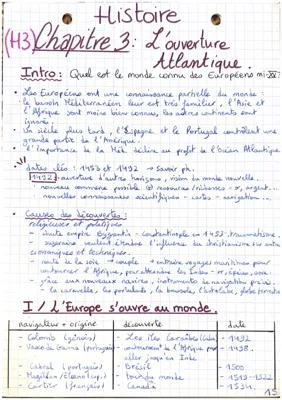 Histoire
(H3) Chapitre 3: L'ouverture
Atlantique.
Intro: Quel est le monde connu des Européens mi-XV:
• Les Européens ont une connaissance partielle du monde :
le bassin Méditerranéen leur est très familier, l'Asie et
l'Afrique sont moins bien connus, les autres continents sont
ignorés.
• Un siècle plus tard, l'Espagne et le Portugal contrôlent une
grande partie de l'Amérique.
• L'importance de la Med. décline au profit de l'Océan Atlantique
dates clés : 1453 et 1492 → Savoir
1492 ouverture d'autres horizons, vision du monde nouvelle.
nouveau commerce possible ressources/richesses - or, argent...
nouvelles connaissances scientifiques - cartes - navigation...
• Causes des découvertes :
religieuses et politiques
- chute empire Byzantin - constantinople en 1453 - traumatisme.
- veulent étendre l'influence du christianisme
économiques et techniques.
- route de la soie coupée → voyages maritimes pour
contourner l'Afrique, pour atteindre les Indes - épices, soie.
- grâce aux nouveaux navires, instruments de navigation
- la caravelle, les portulans, la boussole, l'astrolabe, globe terrestre
I / L'Europe s'ouvre au monde.
navigateur + origine découverte date
- Colomb (génois) - Les îles Caraïbes (Cuba) - 1492
- Vasco de Gama (portugais) - contournement de l'Afrique pour - 1498.
aller jusqu'en Inde
- Cabral (portugais) - Brésil - 1500
- Magellan - tour du monde - 1519-1522
- Cartier (français) - Canada - 1534.